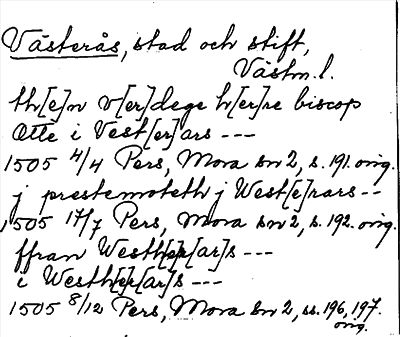 Västerås, stad och stift,
Västm. l.
th[e]n v[er]dege h[er]re biscop
Otte i Vest[er]ars ---
1505 4/4 Pers, Mora sn 2, s. 191. orig.
j prestemoteth j West[e]rars --
1505 17/7 Pers, Mora sn 2, s. 192. orig.
ffran Westh[ar]s ---
i Westh[ar]s ---
1505 8/12 Pers, Mora sn 2, ss. 196, 197.
orig.